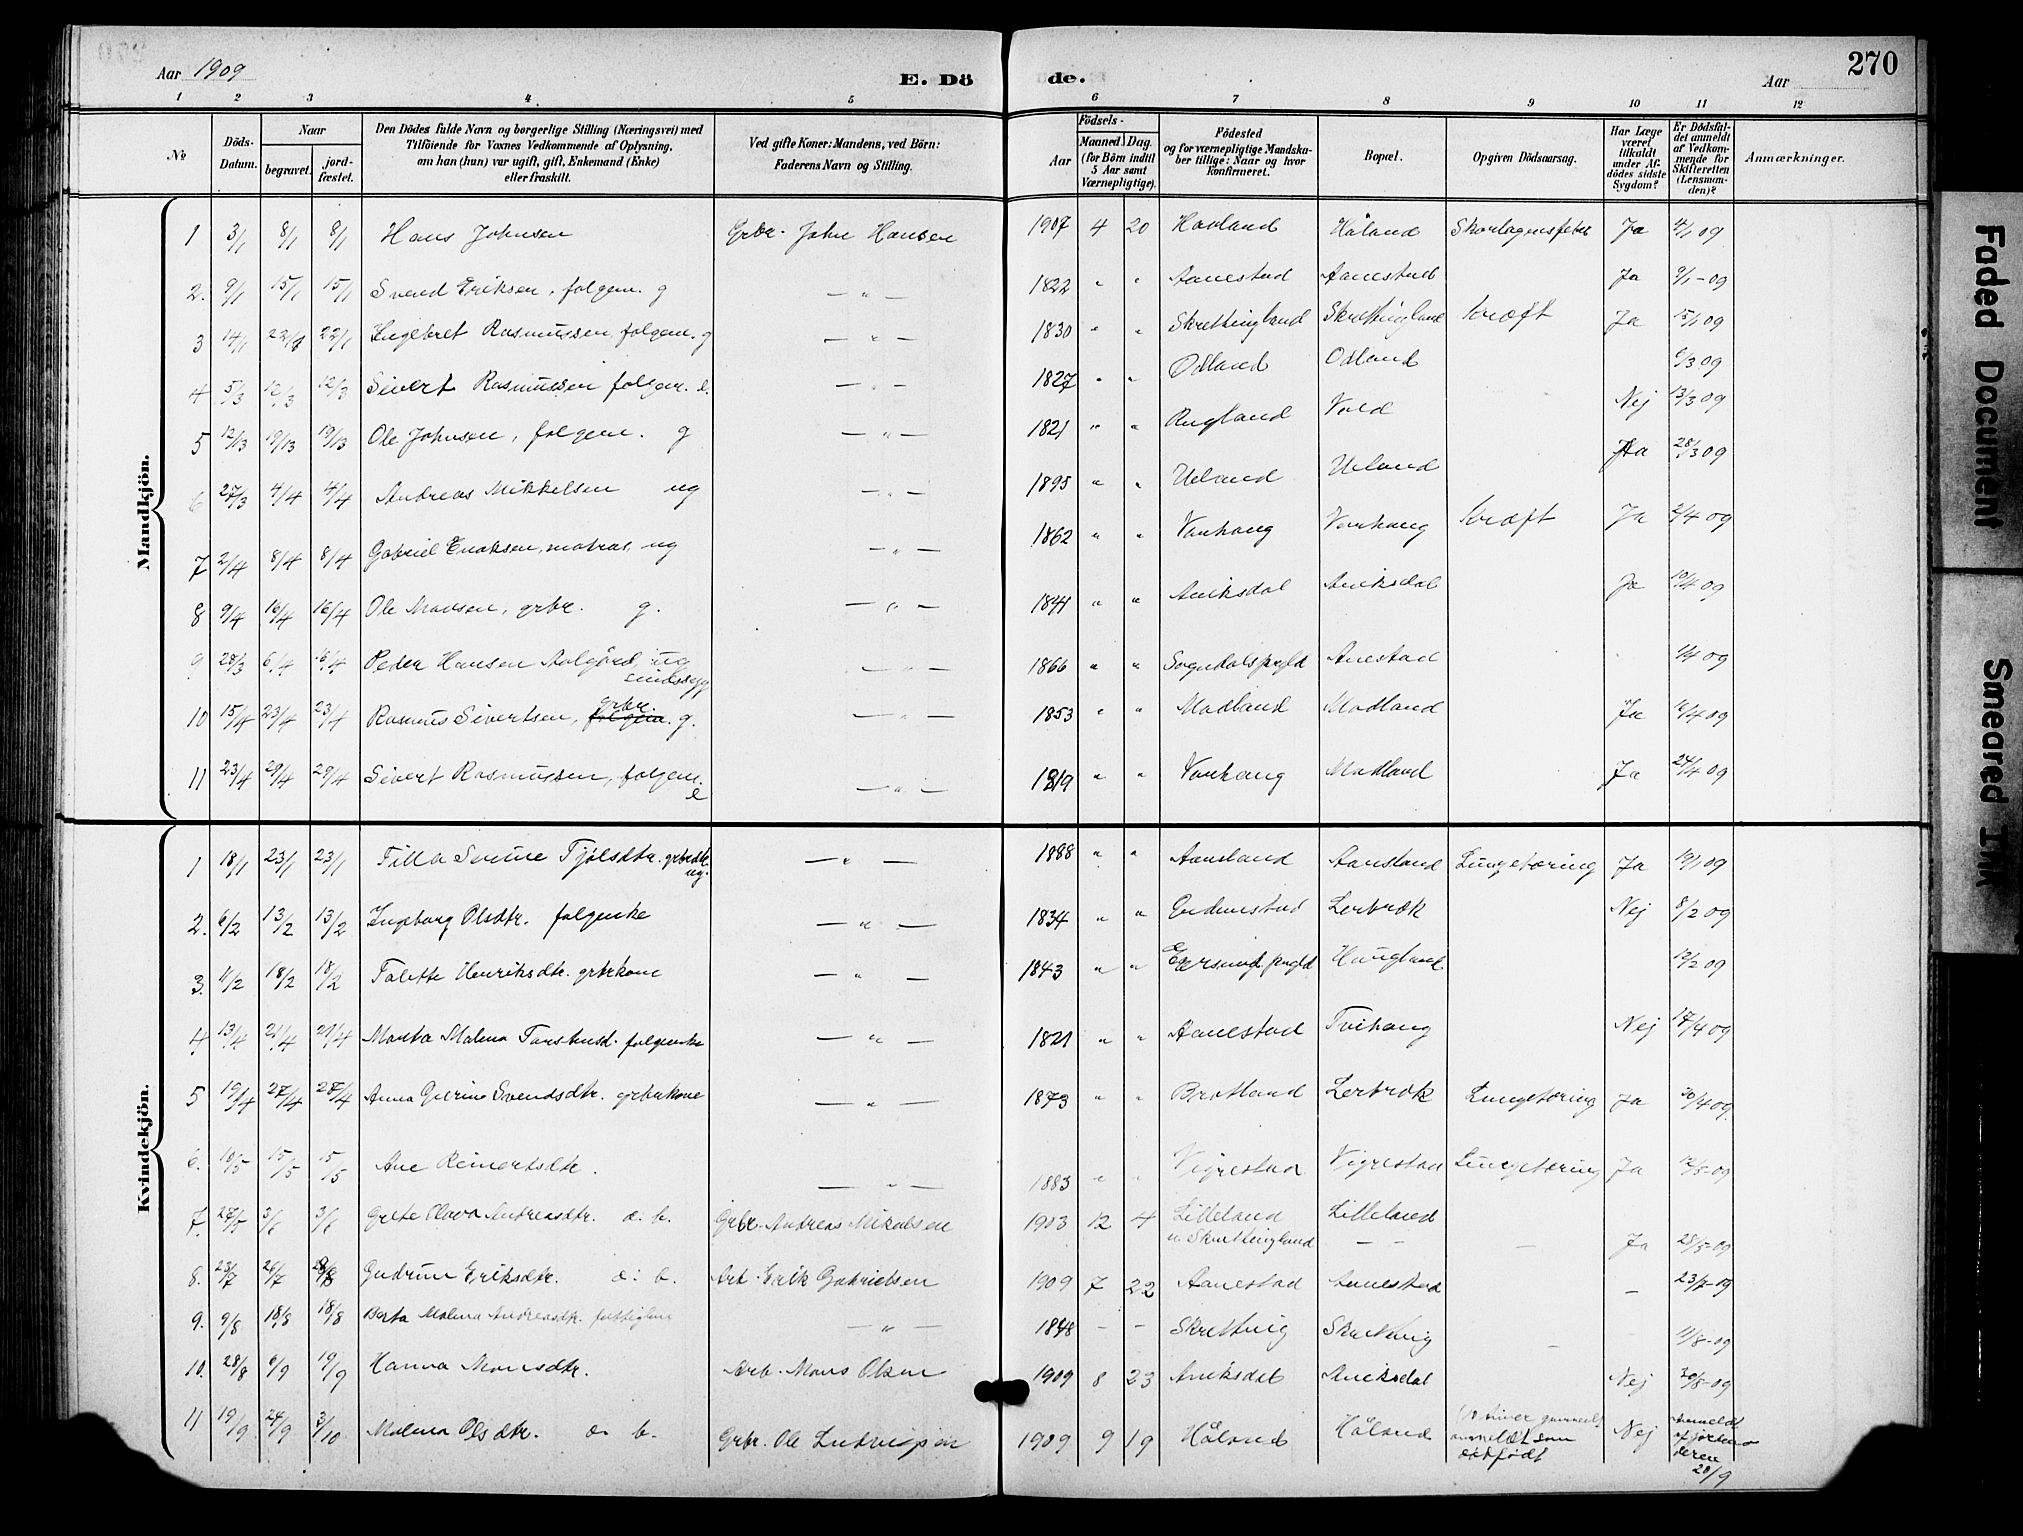 Aar 1909
E. Dö
de.
Aar
270
1 2 3 4 5 6 7 8 9 10 11 12
No
Döds-Datum.
Naar
begravet.
jord-fæstet.
Den Dödes fulde Navn og borgerlige Stilling (Næringsvei) med
Tilföiende for Voxnes Vedkommende af Oplysning,
om han (hun) var ugift, gift, Enkemand (Enke)
eller fraskilt.
Ved gifte Koner: Mandens, ved Börn:
Faderens Navn og Stilling.
Födsels-
Aar
Maaned. Dag.
(for Börn indtil
5 Aar samt
Værnepligtige).
Födested
og for værnepligtige Mandska-
ber tillige: Naar og hvor
konfirmeret.
Bopæl.
Opgiven Dödsaarsag.
Har Læge
været
tilkaldt
under Af-
dödes sidste
Sygdom?
Er Dödsfal-
det anmeldt
af Vedkom-
mende for
Skifteretten
(Lensman-
den)?
Anmærkninger.
Mandkjön.
1 3/1 8/1 8/1 Hans Johnsen Grbr. John Hansen 1907 4 20 Haaland Håland Skarlagensfeber Ja 4/1 09
2. 9/1 15/1 15/1 Svend Eriksen, folgem. g — " — 1822 " " Aanestad Aanestad Ja 9/1-09
3 14/1 22/1 22/1 Ingebret Rasmussen, folgem. g — " — 1830 " " Skrettingland Skrettingland Kræft Ja 15/1 09
4 5/3 12/3 12/3 Sivert Rasmussen folgem. e. — " — 1827 " " Odland Odland 6/3 09
5 12/3 19/3 19/3 Ole Johnsen, folgem. g — " — 1821 " " Rugland Vold Nej 13/3 09
6 27/3 4/4 4/4 Andreas Mikkelsen ug — " — 1895 " " Ueland Ueland Ja 28/3 09
7 2/4 8/4 8/4 Gabriel Enoksen, matros, ug — " — 1862 " " Varhaug Varhaug Kræft Ja 2/4 09
8 9/4 16/4 16/4 Ole Monsen, grbr. g. — " — 1841 " " Aniksdal Aniksdal Ja 10/4 09
9 28/3 6/4 6/4 Peder Hansen Aalgård, ug
sindssyg — " — 1866 " " Sogndals pgld Anestad 1/4 09
10 15/4 23/4 23/4 Rasmus Sivertsen, folgem. grbr. g. — " — 1853 " " Madland Madland Ja 16/4 09
11 23/4 29/4 29/4 Sivert Rasmussen, folgem.
e — " — 1819 " " Varhaug Madland Ja 24/4 09
Kvindekjön.
1 18/1 23/1 23/1 Tilla Serine Tjølsdtr. grbrdtr.
ug. — " — 1888 " " Aansland Aansland Lungetæring Ja 19/1 09
2. 6/2 13/2 13/2 Ingeborg Olsdtr. folgenke — " — 1834 " " Endrestad Lerbræk Nej 8/2 09
3. 11/2 18/2 18/2 Talette Henriksdtr. grbrkone — " — 1843 " " Egersund pgld Haugland 12/2 09
4 13/4 21/4 21/4 Marta Malena Torstensd. folgenke — " — 1821 " " Aanestad Tvihaug Nej 17/4 09
5 19/4 27/4 27/4 Anna Gurine Svendsdtr. grbrkone — " — 1873 " " Bratland Lerbræk Lungetæring Ja 20/4 09
6. 10/5 15/5 15/5 Ane Reinertsdtr. — " — 1883 " " Vigrestad Vigrestad Lungetæring Ja 12/5-09
7. 27/5 3/6 3/6 Grete Olava Andreasdtr. e. b. Grbr. Andreas Mikalsen 1903 12 4 Lilleland
u. Skrettingland Lilleland
— — — Ja 28/5-09
8. 23/7 26/7 Gudrun Eriksdtr. e. b. Arb. Erik Gabrielsen 1909 7 22 Aanestad Aanestad — 23/7-09
9. 9/8 18/8 18/8 Berta Malena Andreasdtr. fattiglem — " — 1848 — — Skretting Skretting — 11/8-09
10. 28/8 6/9 19/9 Hanna Monsdtr. Arb. Mons Olsen 1909 8 23 Aniksdal Aniksdal Nej 30/8-09
11 19/9 24/9 3/10 Malena Olsdtr. e. b. Grbr. Ole Ludvigsen 1909 9 19 Håland Håland
anmeldt som
dødfødt Nej Anmeldt
af jordmo
deren
20/9
Faded Document
Smeared Ink